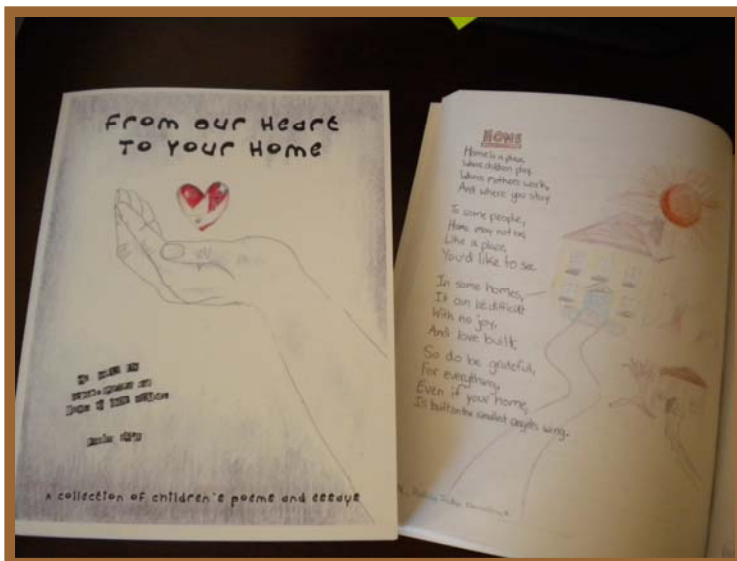 From our Heart
To Your Home
A collection of children's poems and essays
HOME
Home is a place,
Where children play,
Where mothers work,
And where you stay
To some people,
Home may not be,
Like a place,
You'd like to see.
In some homes,
It can be difficult
With no joy,
And love built,
So do be grateful,
For everything,
Even if your home,
Is built on the smallest angel's wing.